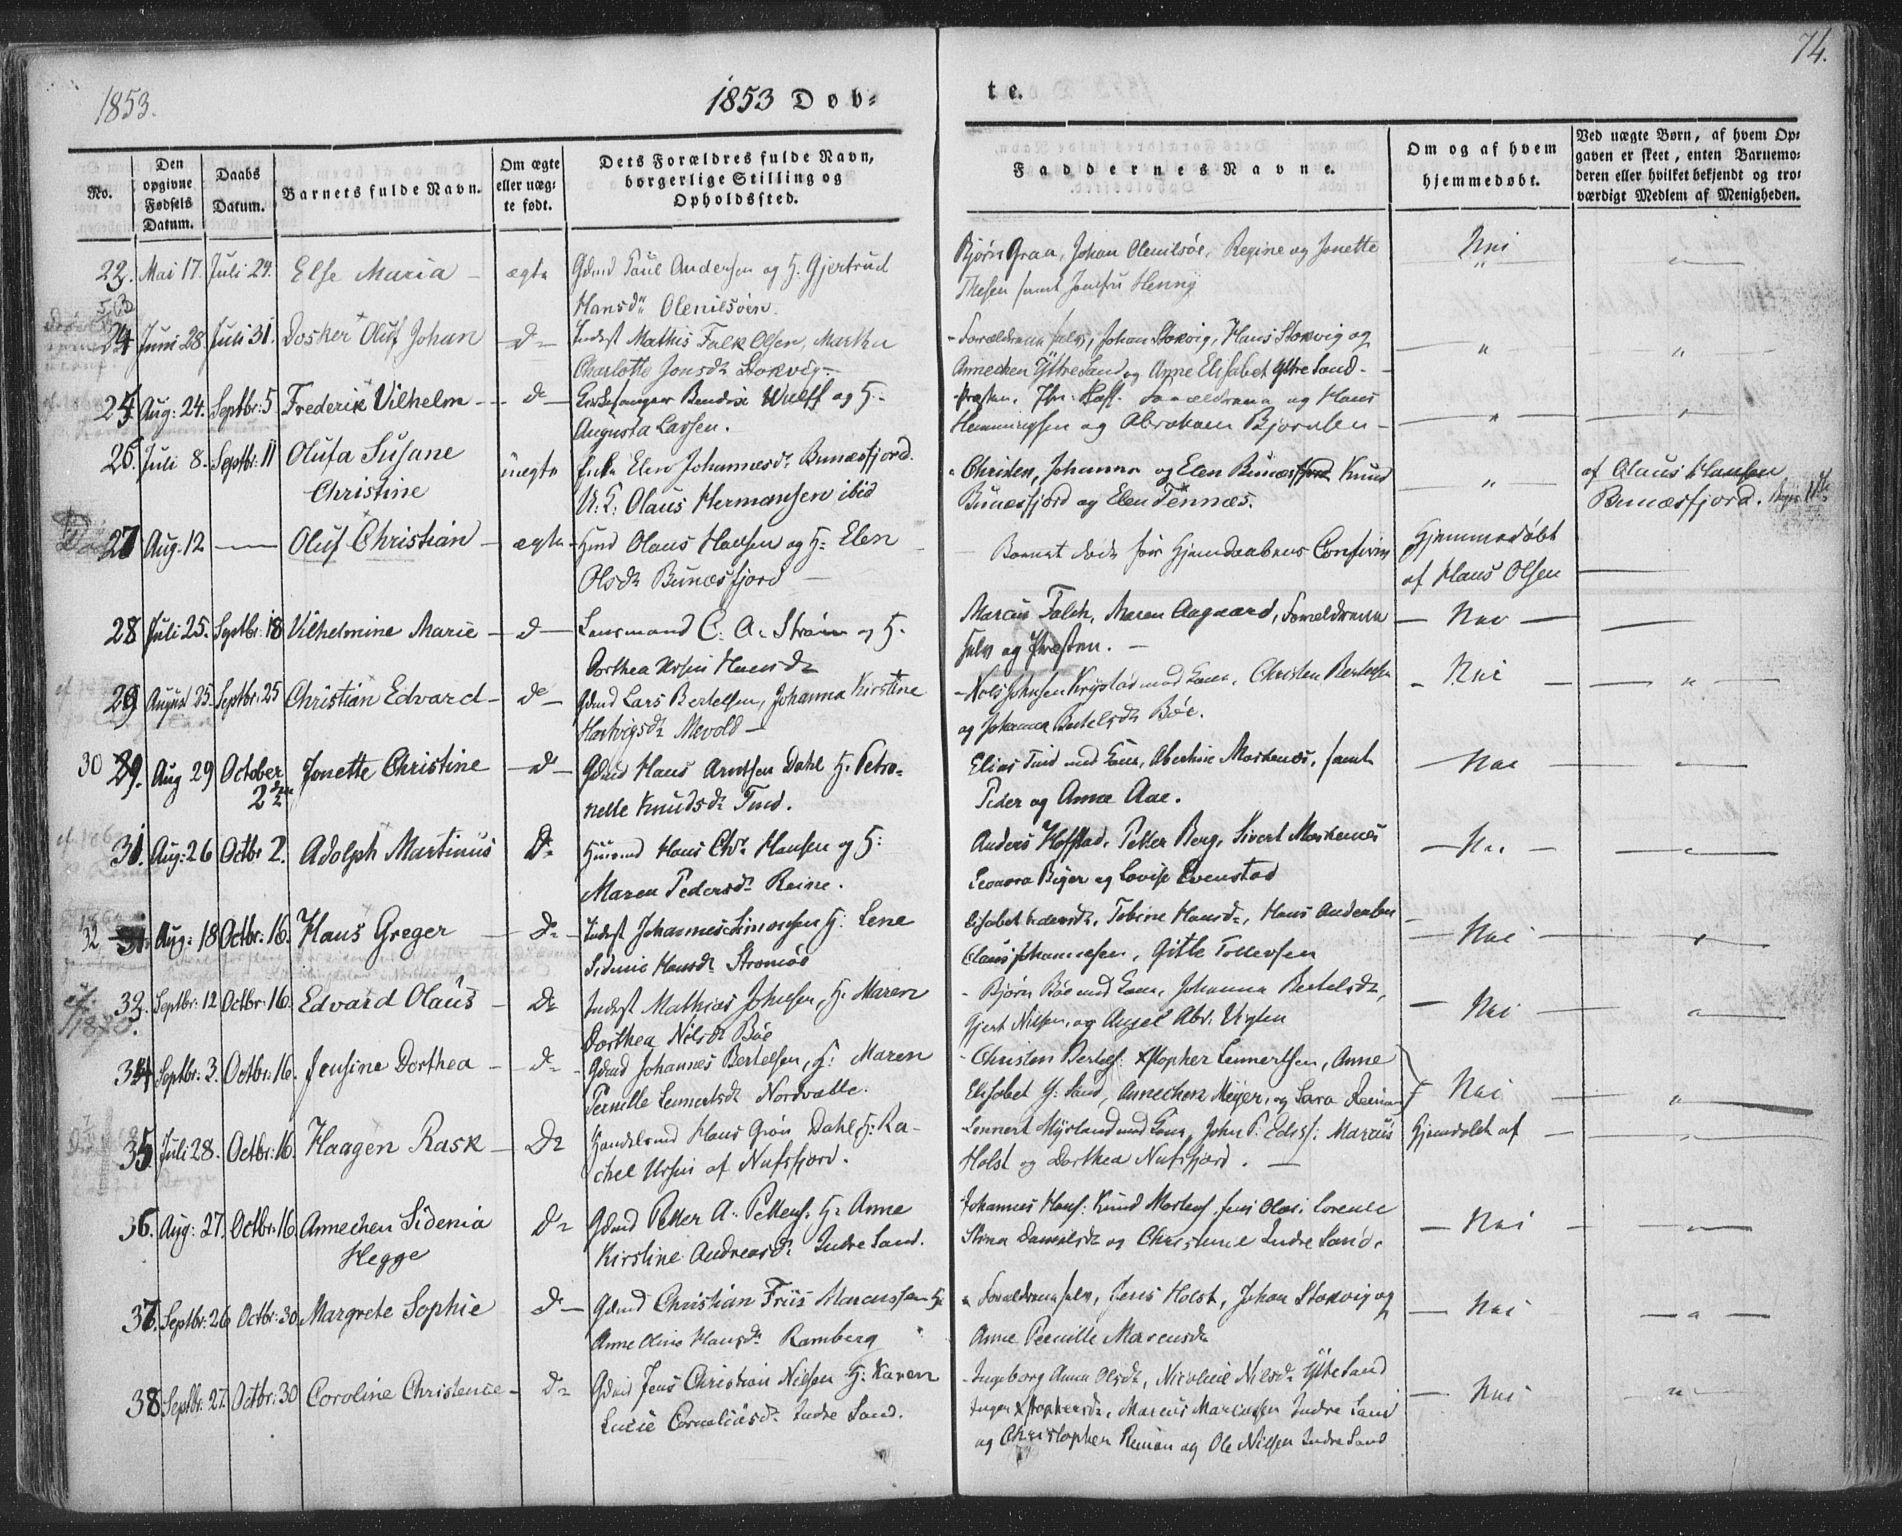 1853.
1853 Døb-
te.
74.
No.
Den opgivne Fødsels Datum.
Daabs Datum.
Barnets fulde Navn.
Om ægte eller uægte født.
Dets Forældres fulde Navn, borgerlige Stilling og Opholdssted.
Faddernes Navne.
Om og af hvem hjemmedøbt.
Ved uægte Børn, af hvem Opgaven er skeet, enten Barnemoderen eller hvilket bekjendt og troværdigt Medlem af Menigheden.
23. Mai 17. Juli 24. Else Maria ægte Gdmd Paul Andersen og H. Gjertrud Bjørn Graa, Johan Olenilsøe, Regine og Jonette Nei
Hansdr Olenilsøen. Thesen samt Jomfru Henny
24 Juni 28. Juli 31. Dosker Oluf Johan D Inderst Mathis Falk Olsen, Martha Forældrene selv, Johan Stokvig, Hans Stokvig og
Charlotte Jonsdr Stokvig Annechen Yttre Sand og Anne Elisabet Yttre Sand
25 Aug: 24. Septbr: 5 Frederik Vilhelm d Kirkesanger Bendix Wulff og H. Præsten, Forældrene og Hans
Augusta Larsen. Hemmingsen og Abraham Bjørnsen
26. Juli 8. Septbr: 11 Olufa Susane uegte Pike Elen Johannesdr Bunæsfjord. Christen, Johanna og Elen Bunæsfjord Knud af Olaus Hansen
Christine U. K. Olaus Hermansen ibid Bunæsfjord og Elen Tennæs. Bunæsfjord.
27 Aug. 12 Oluf Christian ægte Hmd Olaus Hansen og H: Elen Barnet døde før Hjemdaabens Confirm Hjemmedøbt
Olsdr Bunæsfjord af Hans Olsen
28 Juli 25. Septbr: 18 Vilhelmine Marie d Lensmand C. A. Strøm og H. Marcus Falch, Maren Aagaard, Forældrene Nei
Dorthea Ursin Hansdr selv og Præsten.
29 August 25. Septbr: 25 Christian Edvard d Gdmd Lars Bertelsen, Johanna Kirstine Nels Johnsen Krystad med Kone, Christen Bertelsen Nei
Hartvigsdr Mevold og Johanna Bertelsdr Bøe.
30 29. Aug 29 October Jonette Christine d Gdmd Hans Arntsen Dahl H. Petro- Elias Tind med Kone, Abertine Moskenes, samt Nei
2den nelle Knudsdr Tind. Peder og Anna Aae.
31. Aug: 26 Octbr 2. Adolph Martinus D Husmd Hans Chr. Hansen og H: Anders Hofstad, Petter Berg, Sivert Moskenes Nei
Maren Pedersdr Reine. Leonora Biger og Lovise Evenstad
32 31. Aug: 18 Octbr: 16. Hans Greger D Inderst Johannes Simonsen H: Lene Elisabet Pedersdr, Tobine Hansdr, Hans Andersen Nei
Sidenie Hansdr Strømøe Claus Johannesen, Gitte Tollevsen
33. Septbr: 12 Octbr: 16. Edvard Olaus D Inderst Mathias Johnsen, H. Maren Bjørn Bøe med Kone, Johanna Bertelsdr, Nei
Dorthea Nilsdr Bøe Gjert Nilsen, og Angel Abr. Vigten
34 Septbr: 3. Octbr: 16. Jensine Dorthea d Gdmd Johannes Bertelsen, H: Maren Christen Bertels: Xstopher Lennertsen, Anne
Pernille Lennertsdr Nordvalle. Elisabet Y: Sand, Annechen Meyer, og Sara Reinan Nei
35. Juli 28. Octbr: 16. Haagen Rask D Handelsmd Hans Grøn Dahl H: Ra- Lennert Myrland med Kone, John P. Edisf: Marcus Hjemdøbt af
chel Ursin af Nufsfjord. Holst og Dorthea Nufsfjord.
36. Aug: 27. Octbr: 16 Annechen Sidenia d Gdmd Petter A. Petters: H: Anne Johannes Hans: Knud Mortens. Jens Olai: Lorense Nei
Hegge Kirstine Andreasdr Indre Sand. Stina Danielsdr og Christine Indre Sand.
37. Septbr: 26 Octbr: 30 Margrete Sophie d Gdmd Christian Friis Marcussen H: Forældrene selv, Jens Holst, Johan Stokvig og Nei
Anne Oline Hansdr Ramberg Anne Pernille Marcusdr
38 Septbr: 27. Octbr: 30 Caroline Christence d Gdmd Jens Christian Nilsen H: Karen Ingeborg Anna Olsdr, Nicoline Nilsdr Ytte Sand Nei
Lucie Corneliusdr Indre Sand. Inger Xstophersdr, Marcus Marcussen Indre Sand
og Christopher Reinan og Ole Nilsen Indre Sand